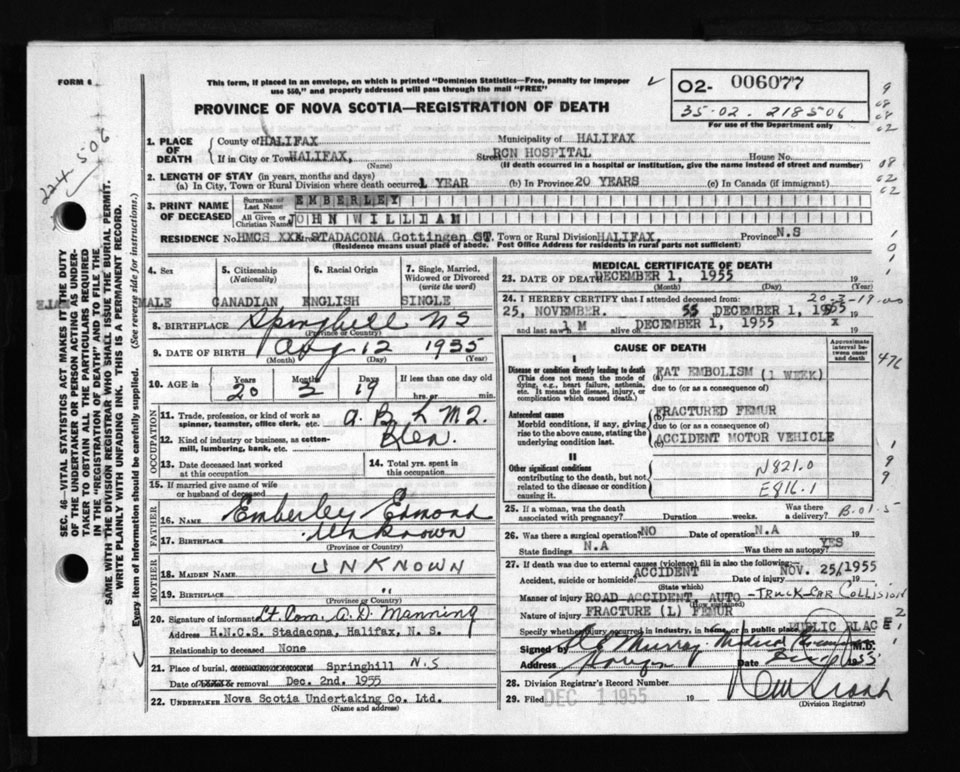 FORM 6
This form, if placed in an envelope, on which is printed "Dominion Statistics—Free, penalty for improper
use $50," and properly addressed will pass through the mail "FREE"
PROVINCE OF NOVA SCOTIA—REGISTRATION OF DEATH
02- 006077
35-02. 218506
For use of the Department only
224 506
SEC. 46—VITAL STATISTICS ACT MAKES IT THE DUTY
OF THE UNDERTAKER OR PERSON ACTING AS UNDER-
TAKER TO OBTAIN ALL THE PARTICULARS REQUIRED
IN THE "REGISTRATION OF DEATH" AND TO FILE THE
SAME WITH THE DIVISION REGISTRAR WHO SHALL ISSUE THE BURIAL PERMIT.
WRITE PLAINLY WITH UNFADING INK. THIS IS A PERMANENT RECORD.
Every item of information should be carefully supplied. (See reverse side for instructions.)
1. PLACE OF DEATH
County of HALIFAX
Municipality of HALIFAX
If in City or Town HALIFAX,
(Name)
Street RCN HOSPITAL
House No.
(If death occurred in a hospital or institution, give the name instead of street and number)
2. LENGTH OF STAY (in years, months and days)
(a) In City, Town or Rural Division where death occurred 1 YEAR
(b) In Province 20 YEARS
(c) In Canada (if immigrant)
3. PRINT NAME OF DECEASED
Surname or Last Name EMBERLEY
All Given or Christian Names JOHN WILLIAM
RESIDENCE No. HMCS XXX STADACONA Gottingen ST. Town or Rural Division HALIFAX, Province N.S
(Residence means usual place of abode. Post Office Address for residents in rural parts not sufficient)
4. Sex
5. Citizenship (Nationality)
6. Racial Origin
7. Single, Married, Widowed or Divorced (write the word)
MALE CANADIAN ENGLISH SINGLE
8. BIRTHPLACE Springhill NS
(Province or Country)
9. DATE OF BIRTH Aug 12 1935
(Month) (Day) (Year)
10. AGE in
Years Months Days
20 3 19
If less than one day old
hrs. or min.
OCCUPATION
11. Trade, profession, or kind of work as
spinner, teamster, office clerk, etc.
12. Kind of industry or business, as cotton-
mill, lumbering, bank, etc.
13. Date deceased last worked
at this occupation
14. Total yrs. spent in
this occupation
15. If married give name of wife
or husband of deceased
FATHER
16. NAME Emberley Edmond
17. BIRTHPLACE Unknown
(Province or Country)
MOTHER
18. MAIDEN NAME UNKNOWN
19. BIRTHPLACE "
(Province or Country)
20. Signature of informant Lt. Com. A. D. Manning
Address H.N.C.S. Stadacona, Halifax, N. S.
Relationship to deceased None
21. Place of burial, Springhill N.S
Date of or removal Dec. 2nd. 1955
22. UNDERTAKER Nova Scotia Undertaking Co. Ltd.
(Name and address)
MEDICAL CERTIFICATE OF DEATH
23. DATE OF DEATH DECEMBER 1, 1955 19
(Month) (Day) (Year)
24. I HEREBY CERTIFY that I attended deceased from:
20-3-19-00
25, NOVEMBER. 55 DECEMBER 1, 1955
and last saw h IM alive on DECEMBER 1, 1955 X
CAUSE OF DEATH
Approximate interval between onset and death
I
Disease or condition directly leading to death
(This does not mean the mode of
dying, e.g., heart failure, asthenia,
etc. It means the disease, injury, or
complication which caused death.)
(a) FAT EMBOLISM (1 WEEK)
due to (or as a consequence of)
Antecedent causes
Morbid conditions, if any, giving
rise to the above cause, stating the
underlying condition last.
(b) FRACTURED FEMUR
due to (or as a consequence of)
(c) ACCIDENT MOTOR VEHICLE
II
Other significant conditions
contributing to the death, but not
related to the disease or condition
causing it.
N821.0
E816.1
25. If a woman, was the death
associated with pregnancy? Duration weeks. Was there a delivery?
B.01.5
26. Was there a surgical operation? NO Date of operation N.A
State findings N.A Was there an autopsy? YES
27. If death was due to external causes (violence) fill in also the following:
Accident, suicide or homicide? ACCIDENT Date of injury NOV. 25/1955 19
(State which)
Manner of injury ROAD ACCIDENT, AUTO - TRUCK CAR COLLISION
(How sustained)
Nature of injury FRACTURE (L) FEMUR
Specify whether injury occurred in industry, in home, or in public place PUBLIC PLACE
Signed by Murray Medical M.D.
Address Date 1955
28. Division Registrar's Record Number
29. Filed DEC 1 1955 19
(Division Registrar)